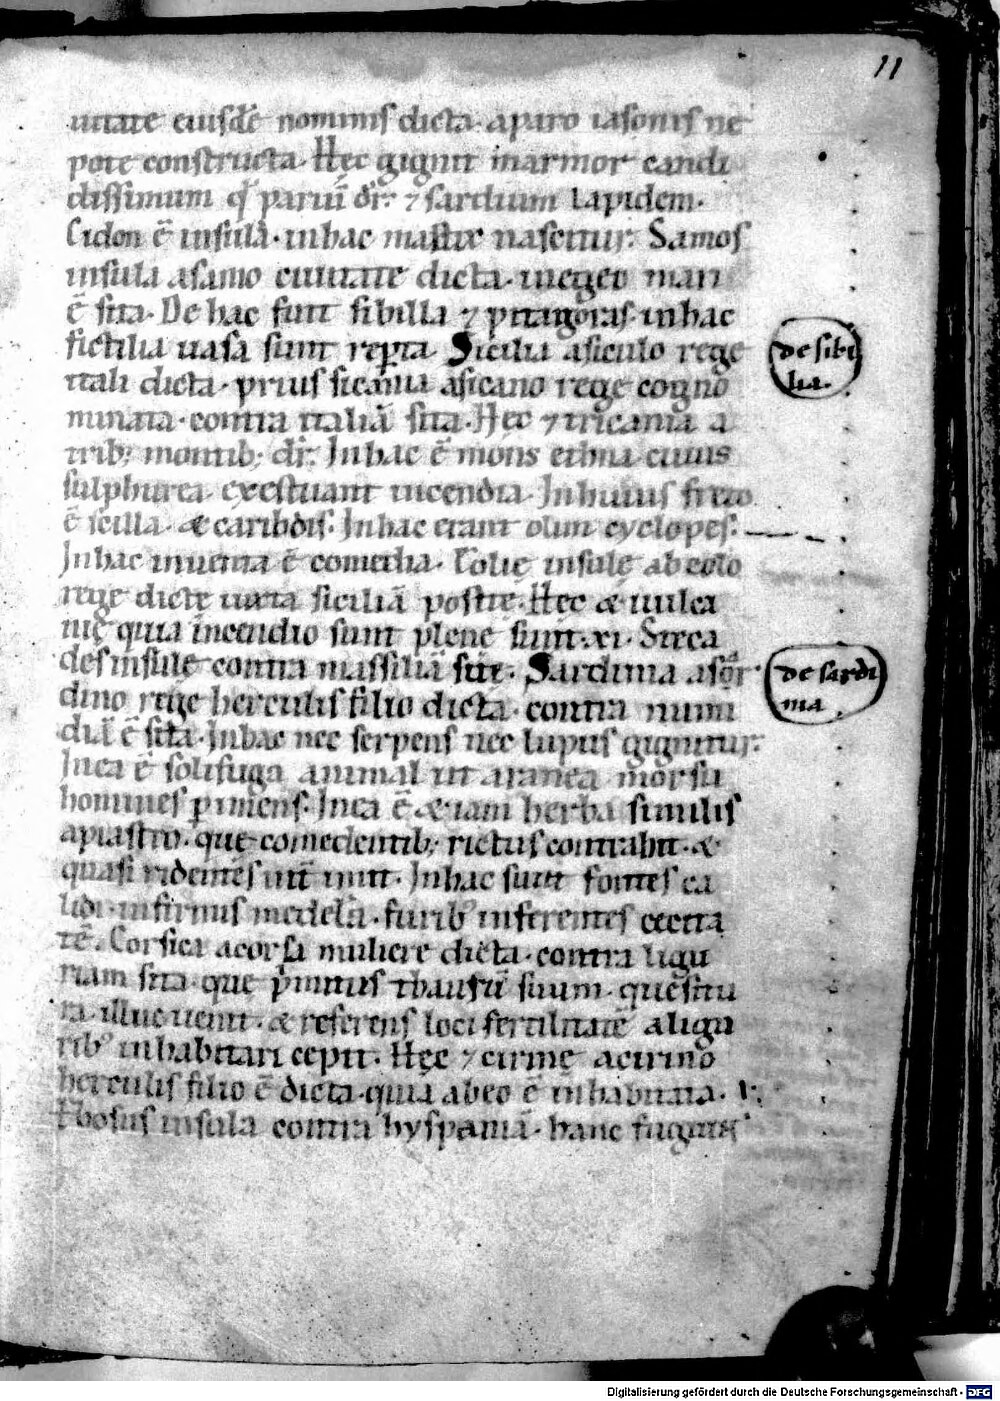 11
uitate eiusdē nominis dicta. aparo iasonis ne
pote constructa. Hęc gignit marmor candi
dissimum q̄d pariū dr̄. ⁊ sardium lapidem.
Cidon ē insula. inhac mastix nascitur. Samos
insula asamo ciuitate dicta. inegeo mari
ē sita. De hac fuit sibilla ⁊ pitagoras. inhac
fictilia uasa sunt reꝑta. Sicilia asiculo rege
itali dicta. prius sicania asicano rege cogno
minata. contra italiā sita. Hęc ⁊ tricania a
trib; montib; dr̄. Inhac ē mons ethna cuius
sulphurea exestuant incendia. Inhuius freto
ē scilla. & caribdis. Inhac erant olim cyclopes.
Inhac inuenta ē comedia. Eolię insulę abeolo
rege dictę iuxta siciliā positę. Hęc & uulca
nię quia incendio sunt plene sunt. xi. Steca
des insulę contra massiliā sitę. Sardinia asar
dino rege herculis filio dicta. contra numi
diā ē sita. Inhac nec serpens nec lupus gignitur.
Inea ē solifuga animal ut aranea morsu
homines ꝑimens. Inea ē & iam herba similis
apiastro. quę comedentib; rictus contrahit. &
quasi ridentes int̄imit. Inhac sunt fontes ca
lidi. infirmis medela. furib; inferentes cecita
tē. Corsica acorsa muliere dicta. contra ligu
riam sita. que p̄mitus thaurū suum. quęsitu
ra. illuc uenit. & referens loci fertilitatē aligu
rib; inhabitari cepit. Hęc ⁊ cirme acirino
herculis filio ē dicta. quia abeo ē inhabitata.
Ebosus insula contra hyspaniā. hanc fugiunt
de sibi
lia.
de sardi
nia.
Digitalisierung gefördert durch die Deutsche Forschungsgemeinschaft - DFG